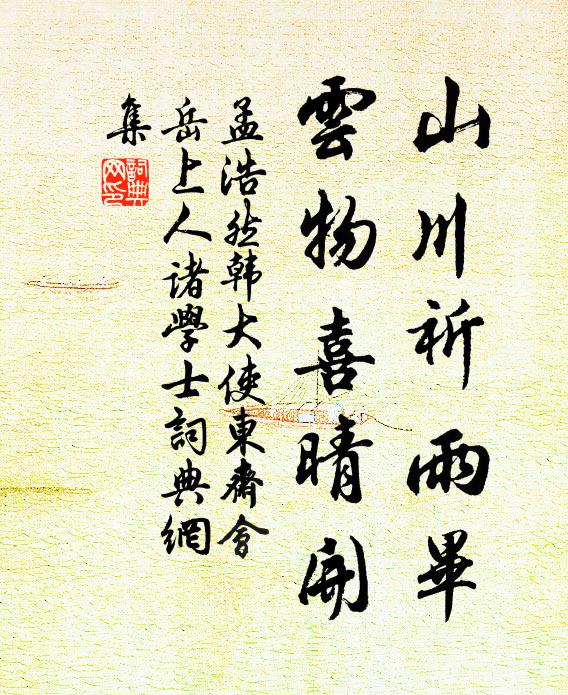 山川祈雨畢
雲物喜晴開
孟浩然韩大使東齋會
岳上人诸學士詞典網
集
詞典
网印